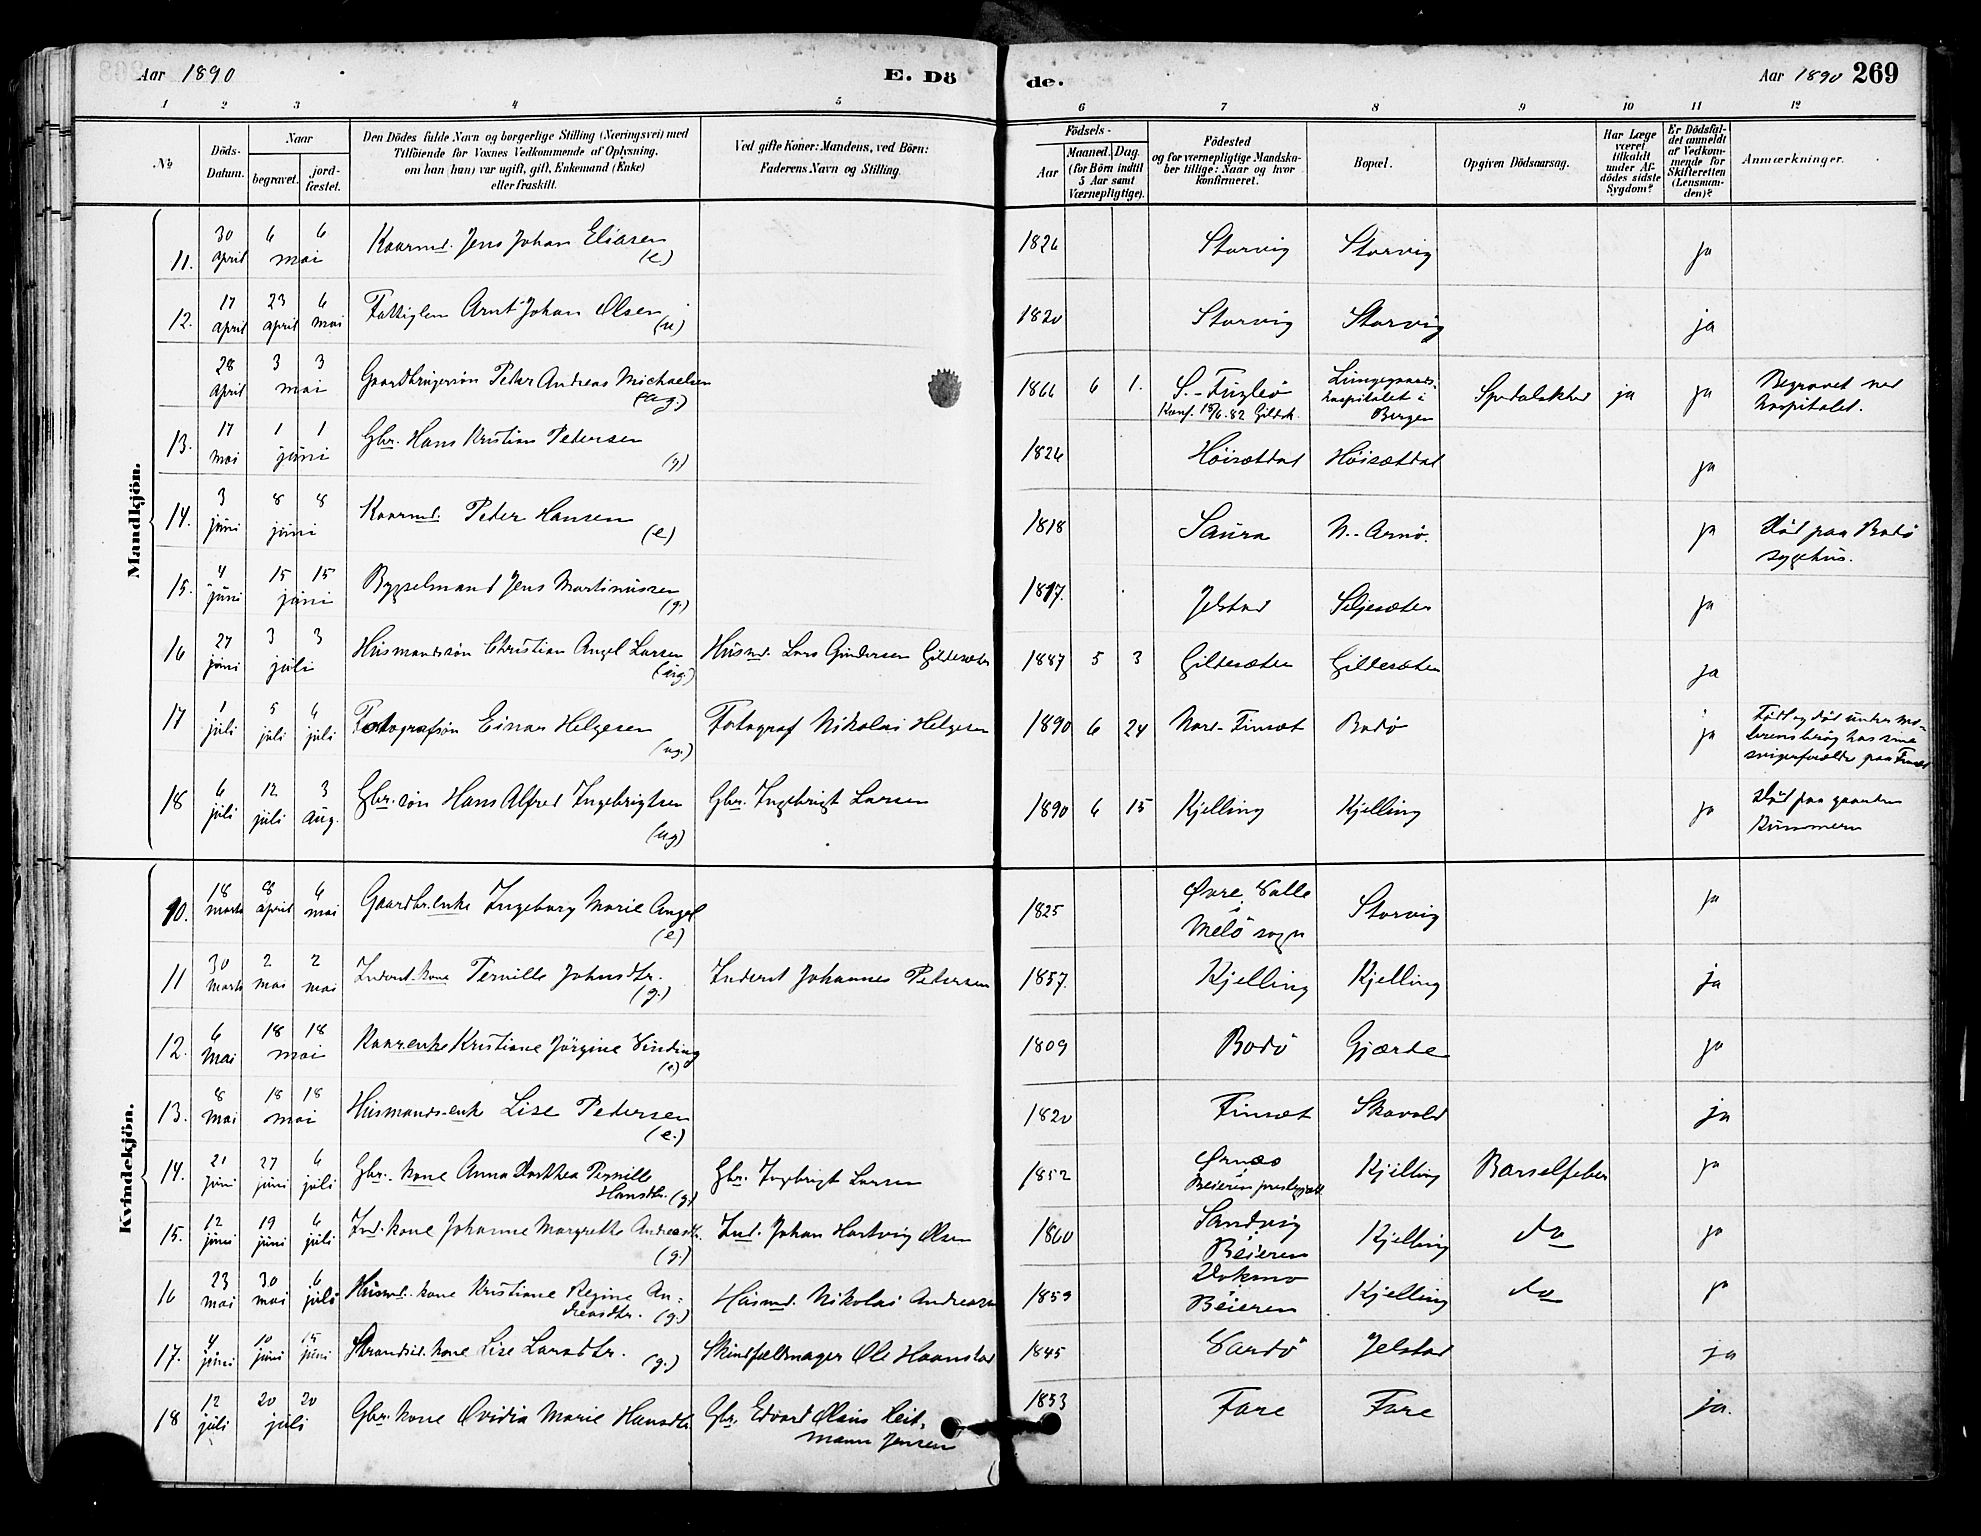 Aar 1890 E. Dö de. Aar 1890 269
1 2 3 4 5 6 7 8 9 10 11 12
No Döds-Datum. Naar begravet. jordfæstet. Den Dödes fulde Navn og borgerlige Stilling (Næringsvei) med Tilföiende for Voxnes Vedkommende af Oplysning, om han (hun) var ugift, gift, Enkemand (Enke) eller fraskilt. Ved gifte Koner: Mandens, ved Börn: Faderens Navn og Stilling. Födsels- Aar Maaned. Dag. (for Börn indtil 5 Aar samt Værnepligtige). Födested og for værnepligtige Mandskaber tillige: Naar og hvor konfirmeret. Bopæl. Opgiven Dödsaarsag. Har Læge været tilkaldt under Afdödes sidste Sygdom? Er Dödsfaldet anmeldt af Vedkommende for Skifteretten (Lensmanden)? Anmærkninger.
Mandkjön.
11. 30 april 6 6 mai Kaarmd. Jens Johan Eliasen (e) 1826 Storvig Storvig ja
12. 17 april 23 april 6 mai Fattiglem Arnt Johan Olsen (u) 1820 Storvig Storvig ja
28 april 3 3 mai Gaardbrugersøn Peter Andreas Michaelsen (ug.) 1866 6 1. S.-Fuglø Konf. 18/6.82 Gildsk. Lungegaardshospitalet i Bergen Spedalskhed ja ja Begravet ved hospitalet.
13. 17 mai 1 1 juni Gbr. Hans Kristian Petersen (g) 1826 Höisætdal Höisætdal ja
14. 3 juni 8 8 juni Kaarmd. Peter Hansen (e) 1818 Saura N.-Arnø. ja Död paa Bodø sygehus.
15. 4 juni 15 15 juni Bygselmand Jens Martinussen (g.) 1817. Jelstad Seljesæter ja
16 27 juni 3 3 juli Husmandssøn Christian Angel Larsen (ug.) Husmd. Lars Gundersen Gildesæter 1887 5 3 Gildesæter Gildesæter ja
17 1 juli 5 juli 6 juli Fotografsøn Einar Helgesen (ug.) Fotograf Nikolai Helgesen 1890 6 24 Nord-Finsæt Bodø ja Född og död under moderens besøg hos sine svigerforældre paa Finsæt
18 6 juli 12 juli 3 aug. Gbr. søn Hans Alfred Ingebrigtsen (ug) Gbr. Ingebrigt Larsen 1890 6 15 Kjelling Kjelling ja Död paa gaarden
Kvindekjön.
10. 18 marts 8 april 6 mai Gaardbr.enke Ingeborg Marie Angel (e) 1825 Øvre Valle i Melö sogn Storvig ja
11 30 marts 2 mai 2 mai Inderst.kone Pernille Johnsdtr. (g.) Inderst Johannes Petersen 1857. Kjelling Kjelling ja
12. 6 mai 18 18 mai Kaar.enke Kristiane Jörgine Vinding (e) 1809 Bodö Gjærde ja
13. 8 mai 18 18 mai Husmands-enke Lise Pedersen (e.) 1820 Finsæt Skavold ja
14. 21 juni 27 juni 6 juli Gbr. kone Anna Dorthea Pernille Hansdtr. (g.) Gbr. Ingebrigt Larsen 1852 Ørnæs Beieren prestegjeld Kjelling Barselfeber ja
15. 12 juni 19 juni 6 juli Ind. kone Johanne Margrethe Andreasdtr. (g.) Ind. Johan Hartvig Olsen 1860 Sandvig Beieren Kjelling do ja
16 23 mai 30 mai 6 juli Husmd. kone Kristiane Regine Andreasdtr. (g.) Husmd. Nikolai Andreasen 1859 Beieren Kjelling do ja
17. 4 juni 10 juni 15 juni Strandsid. kone Lise Larsdtr. (g.) Skindfældmager Ole Haanstad 1845 Vardö Jelstad ja
18 12 juli 20 20 juli Gbr. kone Ovidia Marie Hansdtr. Gbr. Edvard Olaus Heitmann Jensen 1853 Fore Fore ja.